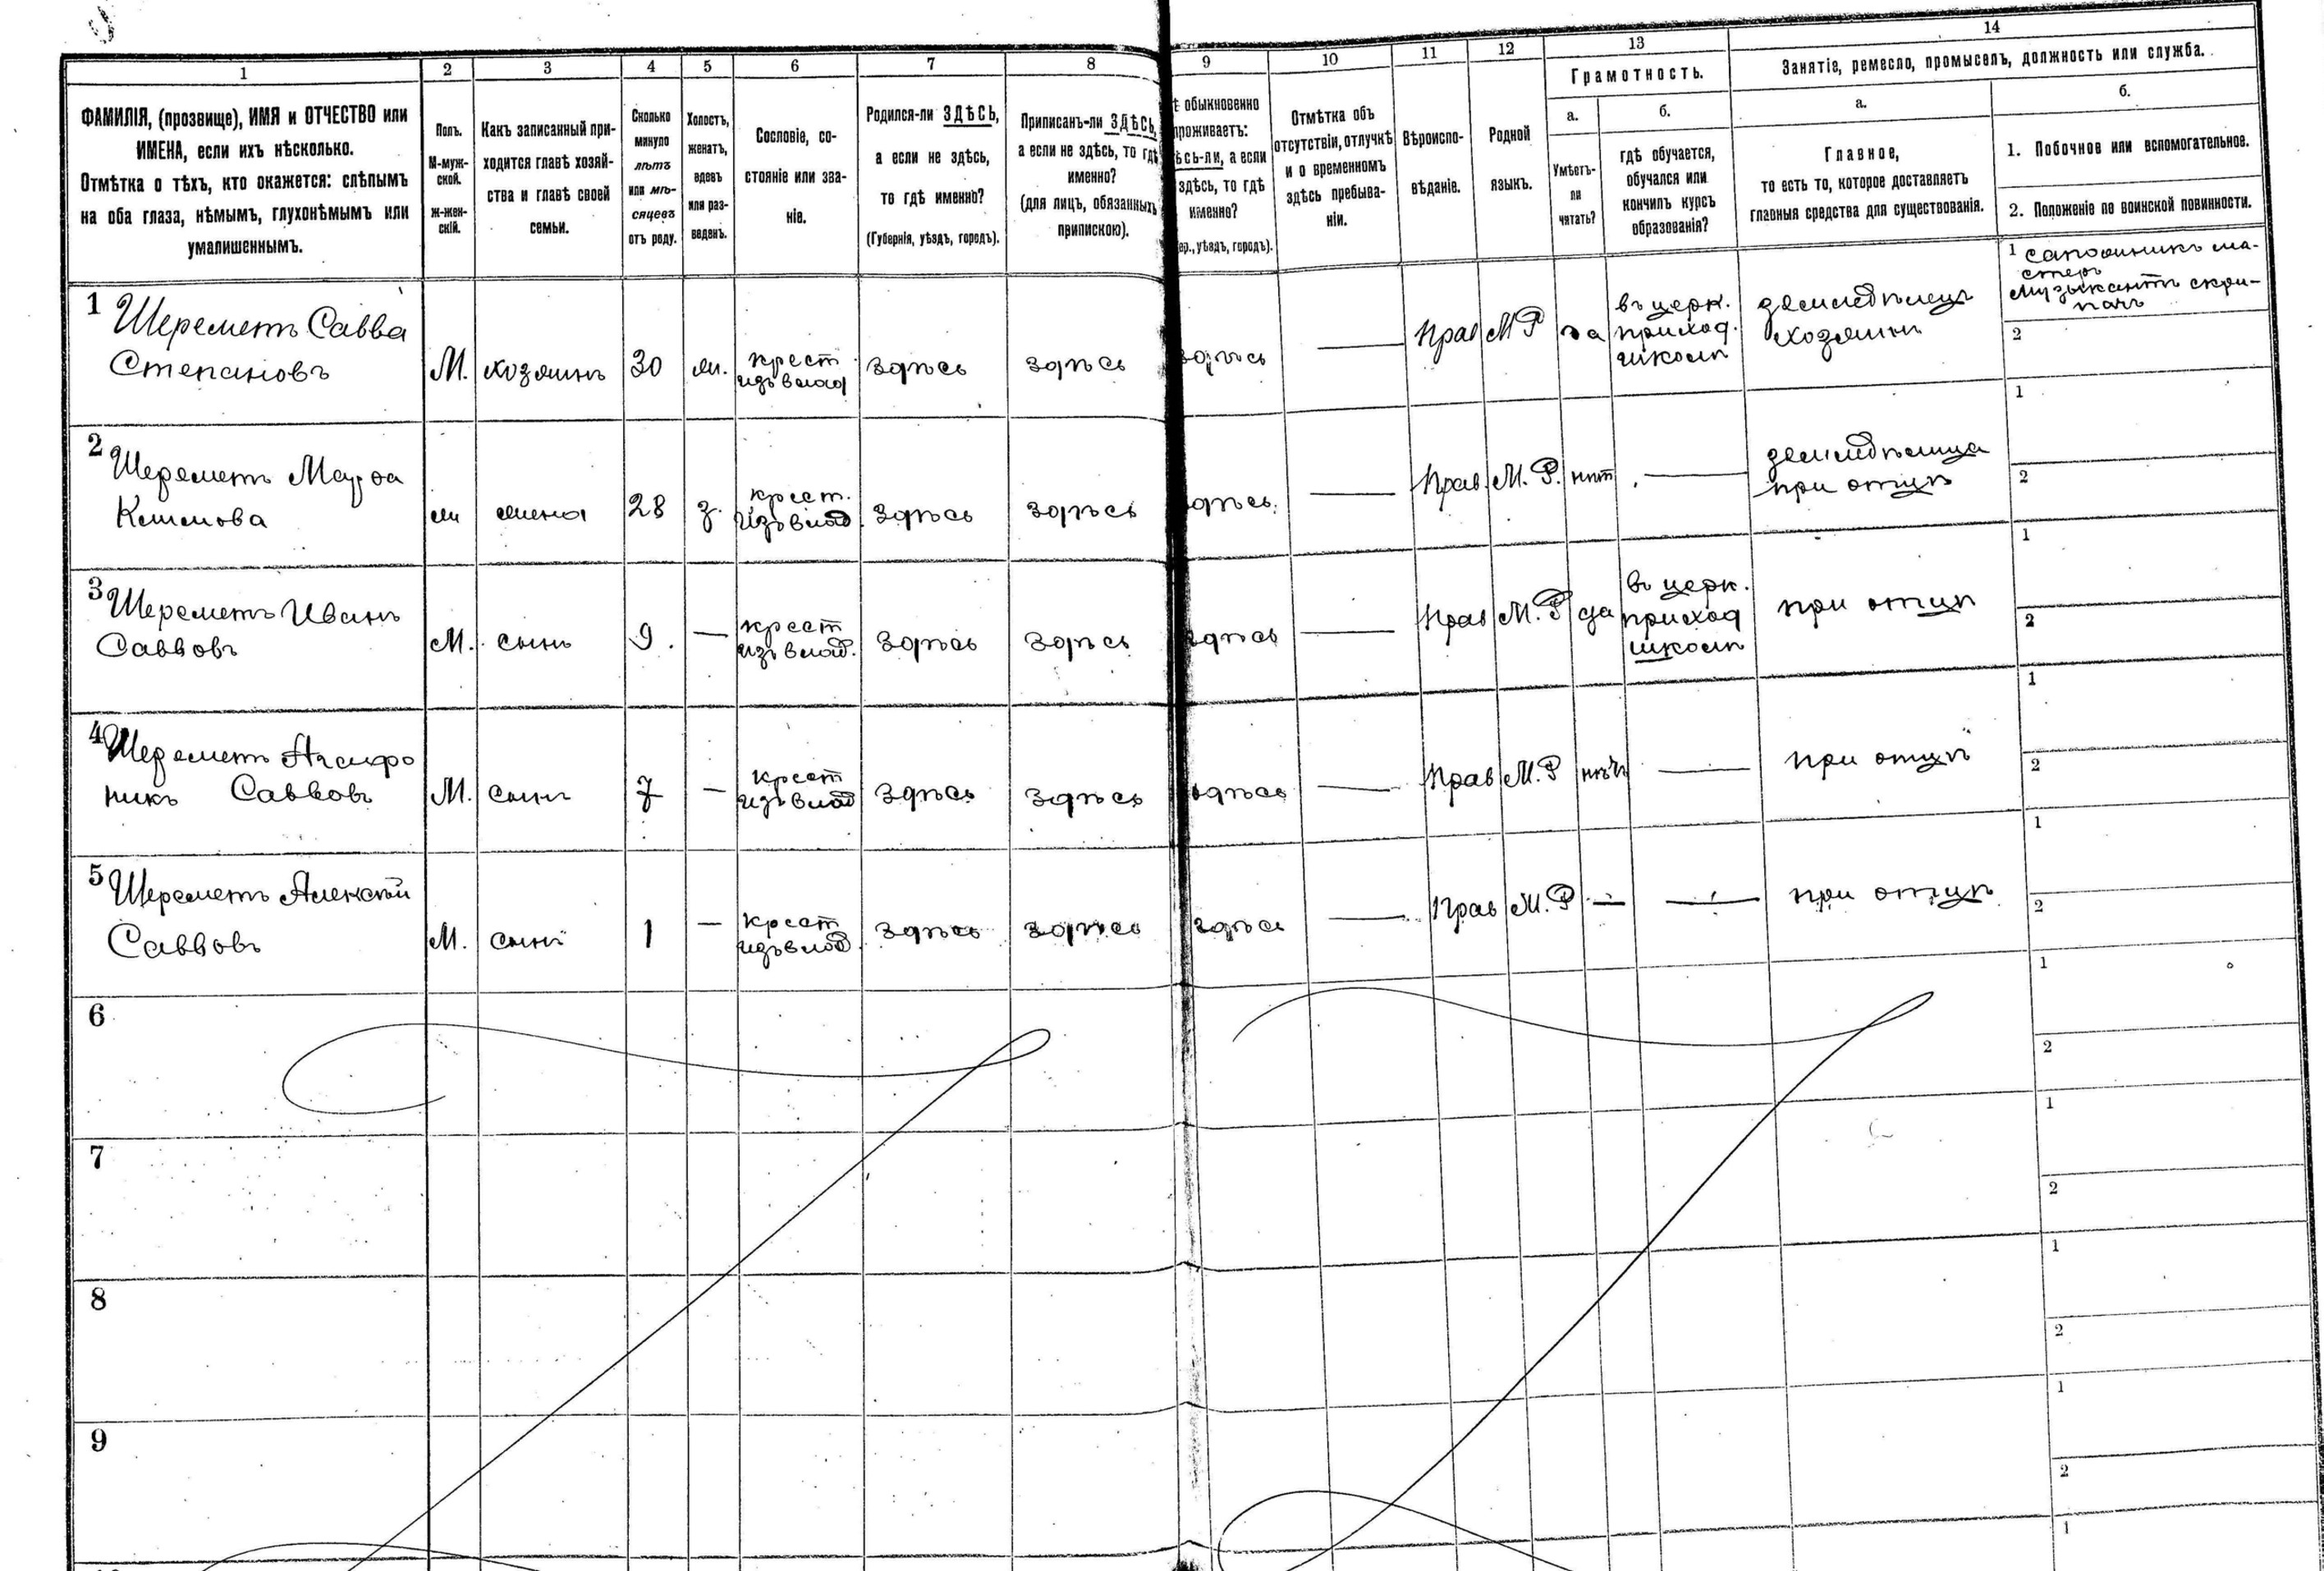 1
2
3
4
5
6
7
8
9
10
11
12
13
14
ФАМИЛІЯ, (прозвище), ИМЯ и ОТЧЕСТВО или
ИМЕНА, если ихъ нѣсколько.
Отмѣтка о тѣхъ, кто окажется: слѣпымъ
на оба глаза, нѣмымъ, глухонѣмымъ или
умалишеннымъ.
Полъ.
М-муж-
ской.
ж-жен-
скій.
Какъ записанный при-
ходится главѣ хозяй-
ства и главѣ своей
семьи.
Сколько
минуло
лѣтъ
или мѣ-
сяцевъ
отъ роду.
Холостъ,
женатъ,
вдовъ
или раз-
веденъ.
Сословіе, со-
стояніе или зва-
ніе.
Родился-ли ЗДѢСЬ,
а если не здѣсь,
то гдѣ именно?
(Губернія, уѣздъ, городъ).
Приписанъ-ли ЗДѢСЬ,
а если не здѣсь, то гдѣ
именно?
(для лицъ, обязанныхъ
припискою).
обыкновенно
проживаетъ:
ѣсь-ли, а если
здѣсь, то гдѣ
именно?
уѣздъ, городъ).
Отмѣтка объ
отсутствіи, отлучкѣ
и о временномъ
здѣсь пребыва-
ніи.
Вѣроиспо-
вѣданіе.
Родной
языкъ.
Грамотность.
а.
Умѣетъ-
ли
читать?
б.
гдѣ обучается,
обучался или
кончилъ курсъ
образованія?
Занятіе, ремесло, промыселъ, должность или служба.
а.
Главное,
то есть то, которое доставляетъ
главныя средства для существованія.
б.
1. Побочное или вспомогательное.
2. Положеніе по воинской повинности.
1 Шереметъ Савва
Степановъ
М.
хозяинъ
30
ж.
крест
изъ влад
здѣсь
здѣсь
здѣсь
Прав
М Р
да
въ церк.
приход.
школѣ
земледѣлецъ
хозяинъ
1 сапожникъ ма-
стеръ
музыкантъ скри-
пачъ
2
2 Шереметъ
ж
жена
28
з.
крест.
изъ влад.
здѣсь
здѣсь
здѣсь.
Прав.
М. Р.
нѣт
земледѣлица
1
2
3 Шереметъ Иванъ
Саввовъ
М.
сынъ
9.
—
крест
изъ влад.
здѣсь
здѣсь
здѣсь
Прав
М. Р
да
въ церк.
приход
школѣ
при отцѣ
1
2
4 Шереметъ
Саввовъ
М.
сынъ
7
—
крест
изъ влад
здѣсь
здѣсь
здѣсь
Прав
М. Р
нѣтъ
при отцѣ
1
2
5 Шереметъ Алексѣй
Саввовъ
М.
сынъ
1
—
крест
изъ влад.
здѣсь
здѣсь
здѣсь
Прав
М. Р
—
при отцѣ
1
2
6
1
2
7
1
2
8
1
2
9
1
2
1